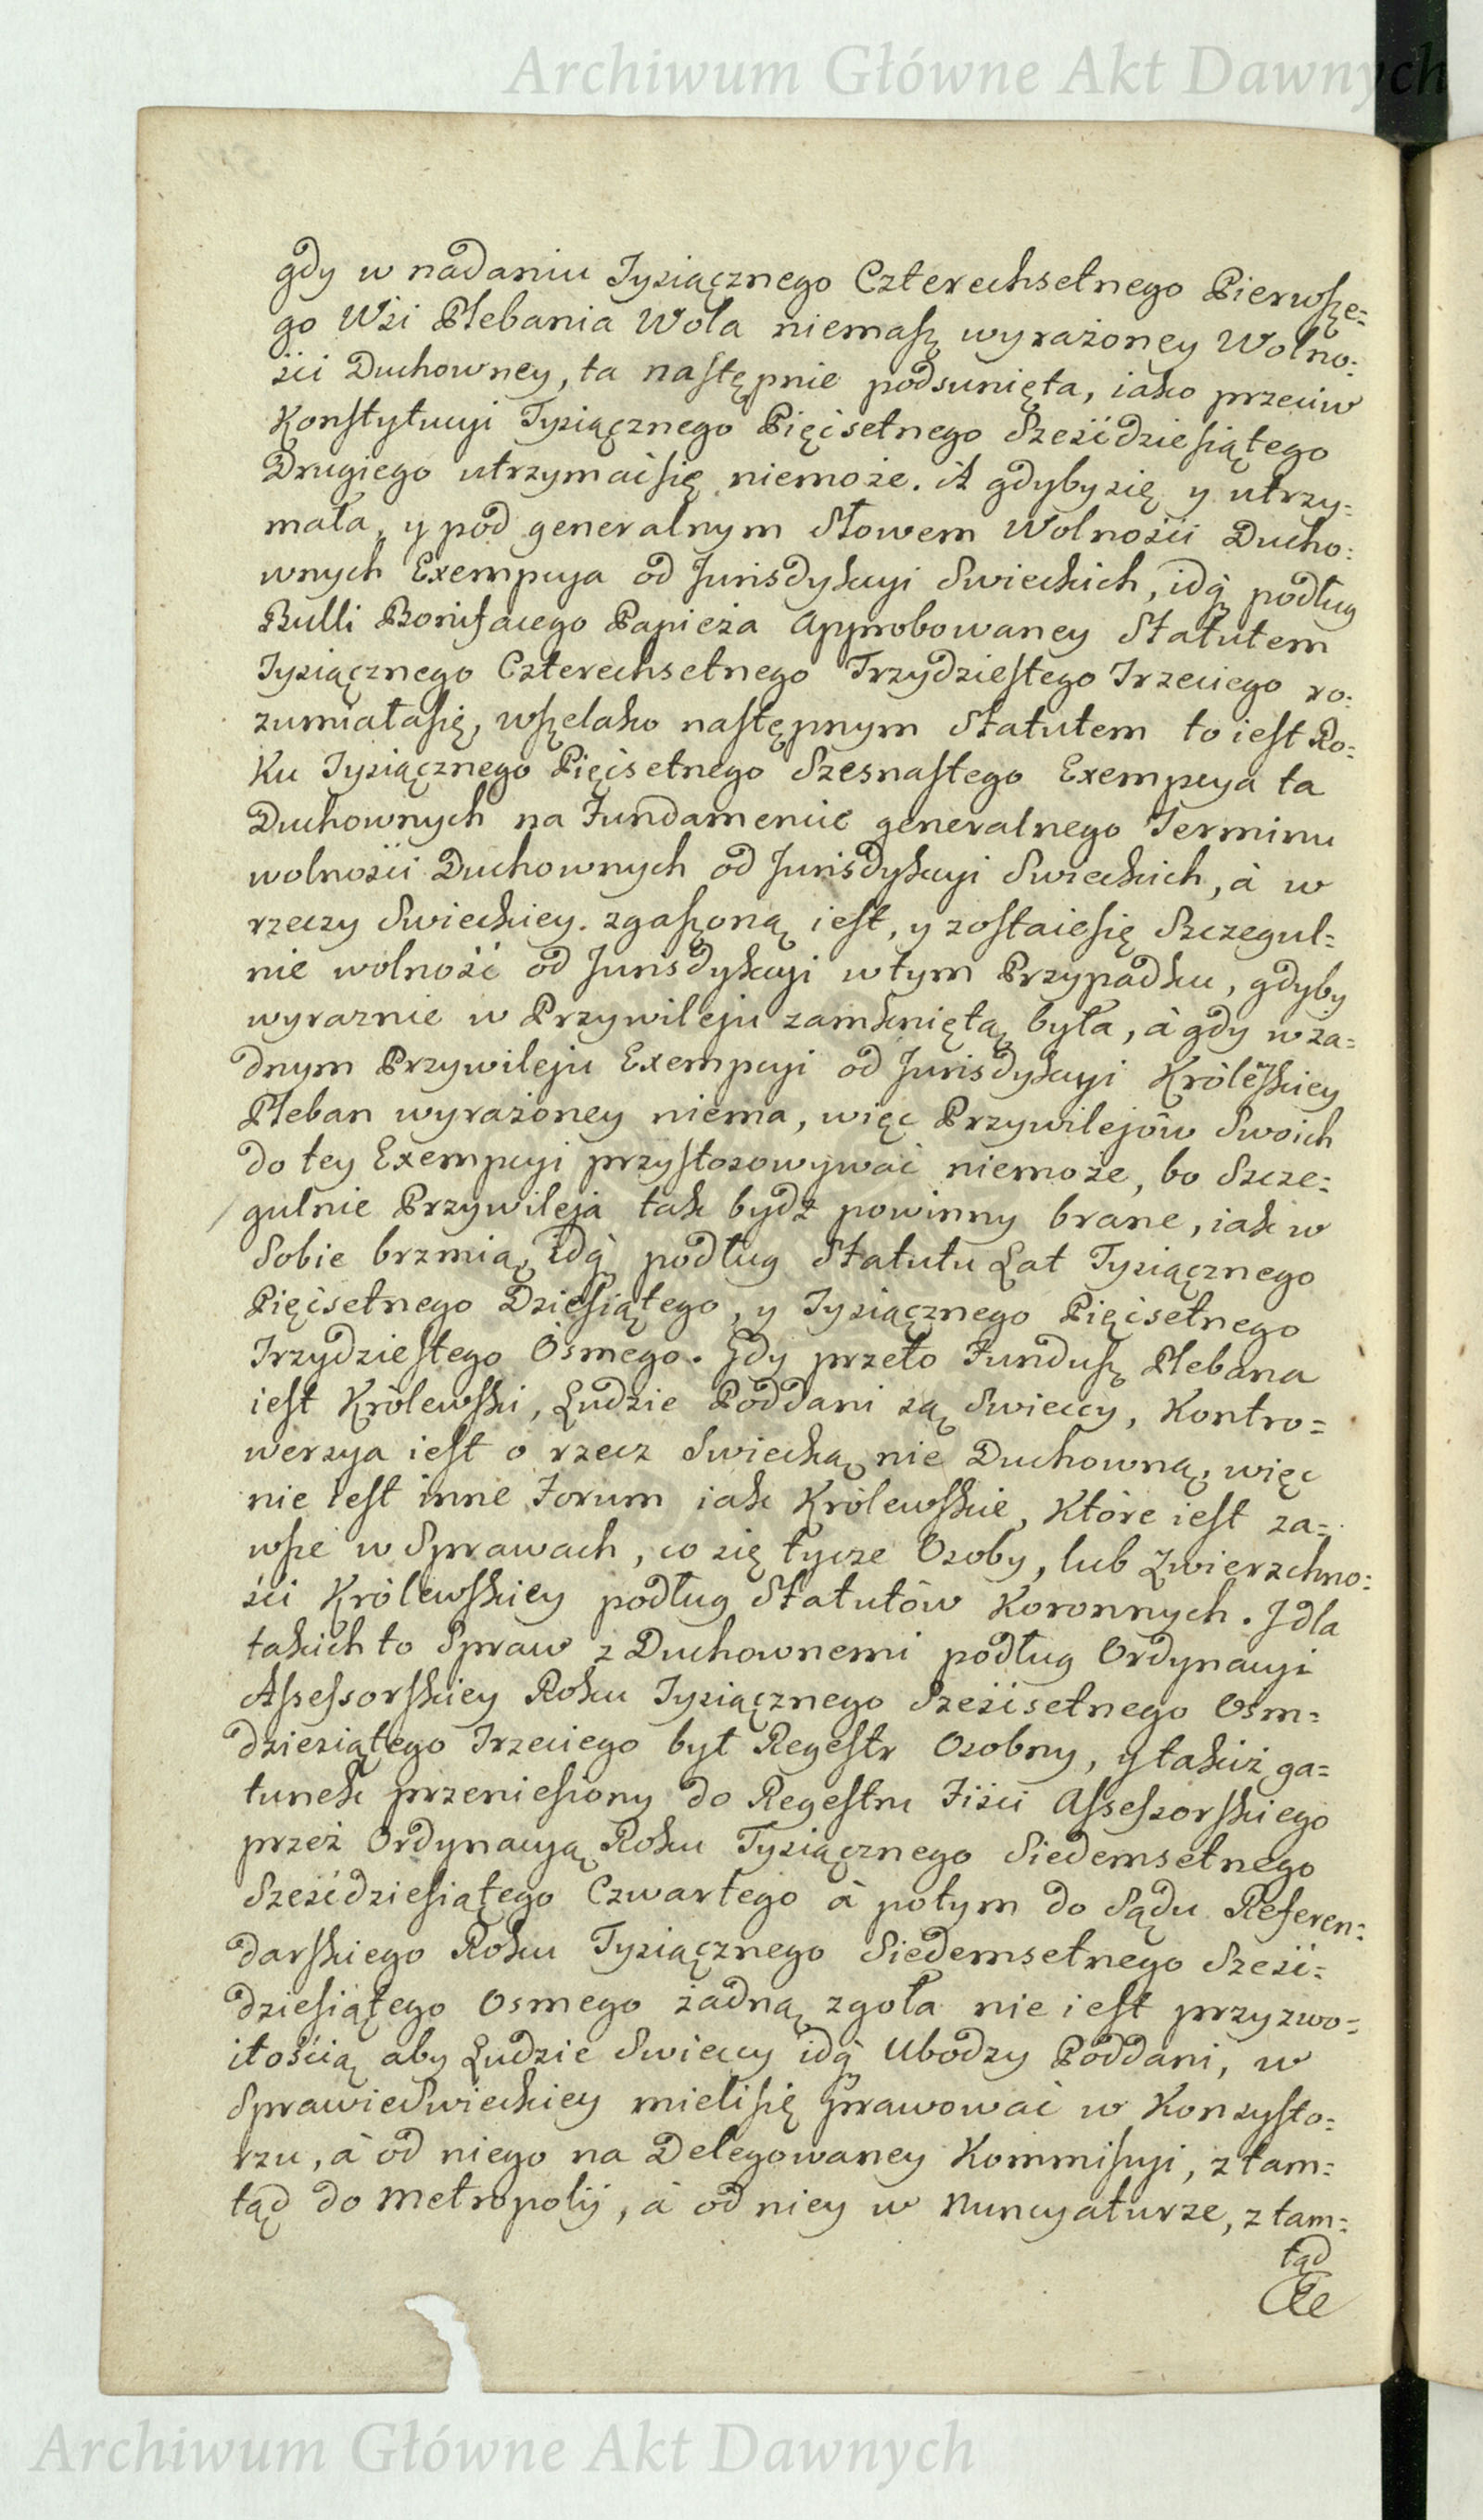 Archiwum Główne Akt Dawnych
gdy w nadaniu Tysiącznego Czterechsetnego Pierwsze=
go Wsi Plebania Wola niemasz wyrażoney Wolno=
ści Duchowney, ta następnie podsunięta, iako przeciw
Konstytucyi Tysiącznego Pięćsetnego Sześćdziesiątego
Drugiego utrzymać się niemoże. A gdyby się y utrzy=
mała, y pod generalnym Słowem Wolności Ducho=
wnych Exempcya od Jurisdykcyi Swieckich, idą podług
Bulli Bonifacego Papieża Approbowaney Statutem
Tysiącznego Czterechsetnego Trzydziestego Trzeciego ro=
zumiała się, wszelako następnym Statutem to iest Ro=
ku Tysiącznego Pięćsetnego Szesnastego Exempcya ta
Duchownych na Fundamencie generalnego Terminu
wolności Duchownych od Jurisdykcyi Swieckich, à w
rzeczy Swieckiey. zgaszoną iest, y zostaie się Szczegul=
nie wolność od Jurisdykcyi w tym Przypadku, gdyby
wyraznie w Przywileju zamkniętą była, à gdy w ża=
dnym Przywileju Exempcyi od Jurisdykcyi Królewskiey
Pleban wyrażoney niema, więc Przywilejów Swoich
do tey Exempcyi przystosowywać niemoże, bo Szcze=
gulnie Przywileja tak bydź powinny brane, iak w
Sobie brzmią, idą podług Statutu Lat Tysiącznego
Pięćsetnego Dziesiątego, y Tysiącznego Pięćsetnego
Trzydziestego Osmego. Gdy przeto Fundusz Plebana
iest Królewski, Ludzie Poddani są Swieccy, Kontro=
wersya iest o rzecz Swiecką nie Duchowną, więc
nie iest inne Forum iak Królewskie, Które iest za=
wsze w Sprawach, co się tycze Osoby, lub Zwierzchno=
ści Królewskiey podług Statutów Koronnych. I dla
takich to Spraw z Duchownemi podług Ordynacyi
Assessorskiey Roku Tysiącznego Sześćsetnego Osm=
dziesiątego Trzeciego był Regestr Osobny, y takiż ga=
tunek przeniesiony do Regestru Fisci Assessorskiego
przez Ordynacyą Roku Tysiącznego Siedemsetnego
Sześćdziesiątego Czwartego à potym do Sądu Referen=
darskiego Roku Tysiącznego Siedemsetnego Sześć=
dziesiątego Osmego żadną zgoła nie iest przyzwo=
itością aby Ludzie Swieccy idą Ubodzy Poddani, w
Sprawie Swieckiey mieli się prawować w Konsysto=
rzu, à od niego na Delegowaney Kommissyi, z tam=
tąd do Metropolij, à od niey w Nuncyaturze, z tam=
tąd
Archiwum Główne Akt Dawnych